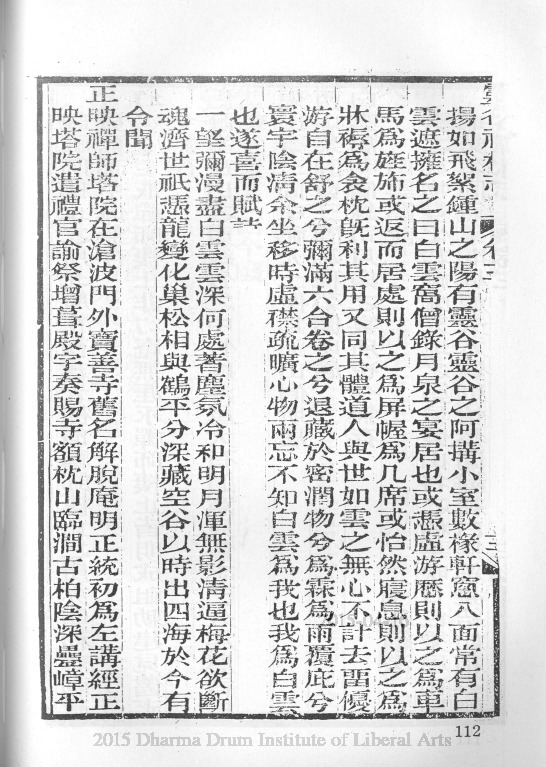 揚如飛絮鍾山之陽有靈谷靈谷之阿搆小室數椽軒窻八面常有白
雲遮擁名之曰白雲窩僧錄月泉之宴居也或憑虛游歷則以之為車
馬為旌斾或返而居處則以之為屏幄為几席或怡然寢息則以之為
牀褥為衾枕旣利其用又同其體道人與世如雲之無心不計去畱優
游自在舒之兮彌滿六合卷之兮退藏於密潤物兮為霖為雨覆庇兮
寰宇陰清余坐移時虛襟疏曠心物兩忘不知白雲為我也我為白雲
也遂喜而賦詩
一望彌漫盡白雲雲深何處著塵氛冷和明月渾無影清逼梅花欲斷
魂濟世祇憑龍變化巢松相與鶴平分深藏空谷以時出四海於今有
令聞
正映禪師塔院在滄波門外寶善寺舊名解脫庵明正統初為左講經正
映塔院遣禮官諭祭增葺殿宇奏賜寺額枕山臨澗古柏陰深疊嶂平
卷三
112
2015 Dharma Drum Institute of Liberal Arts